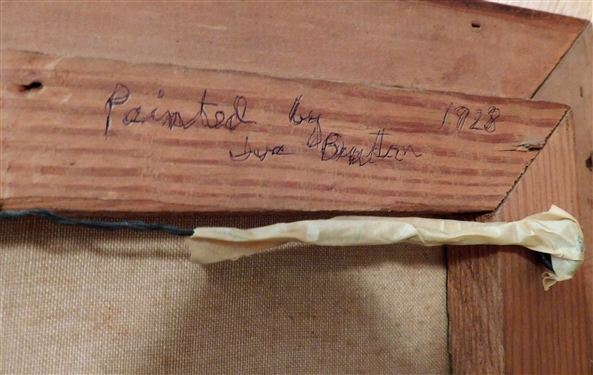 Painted by 1928
Iva